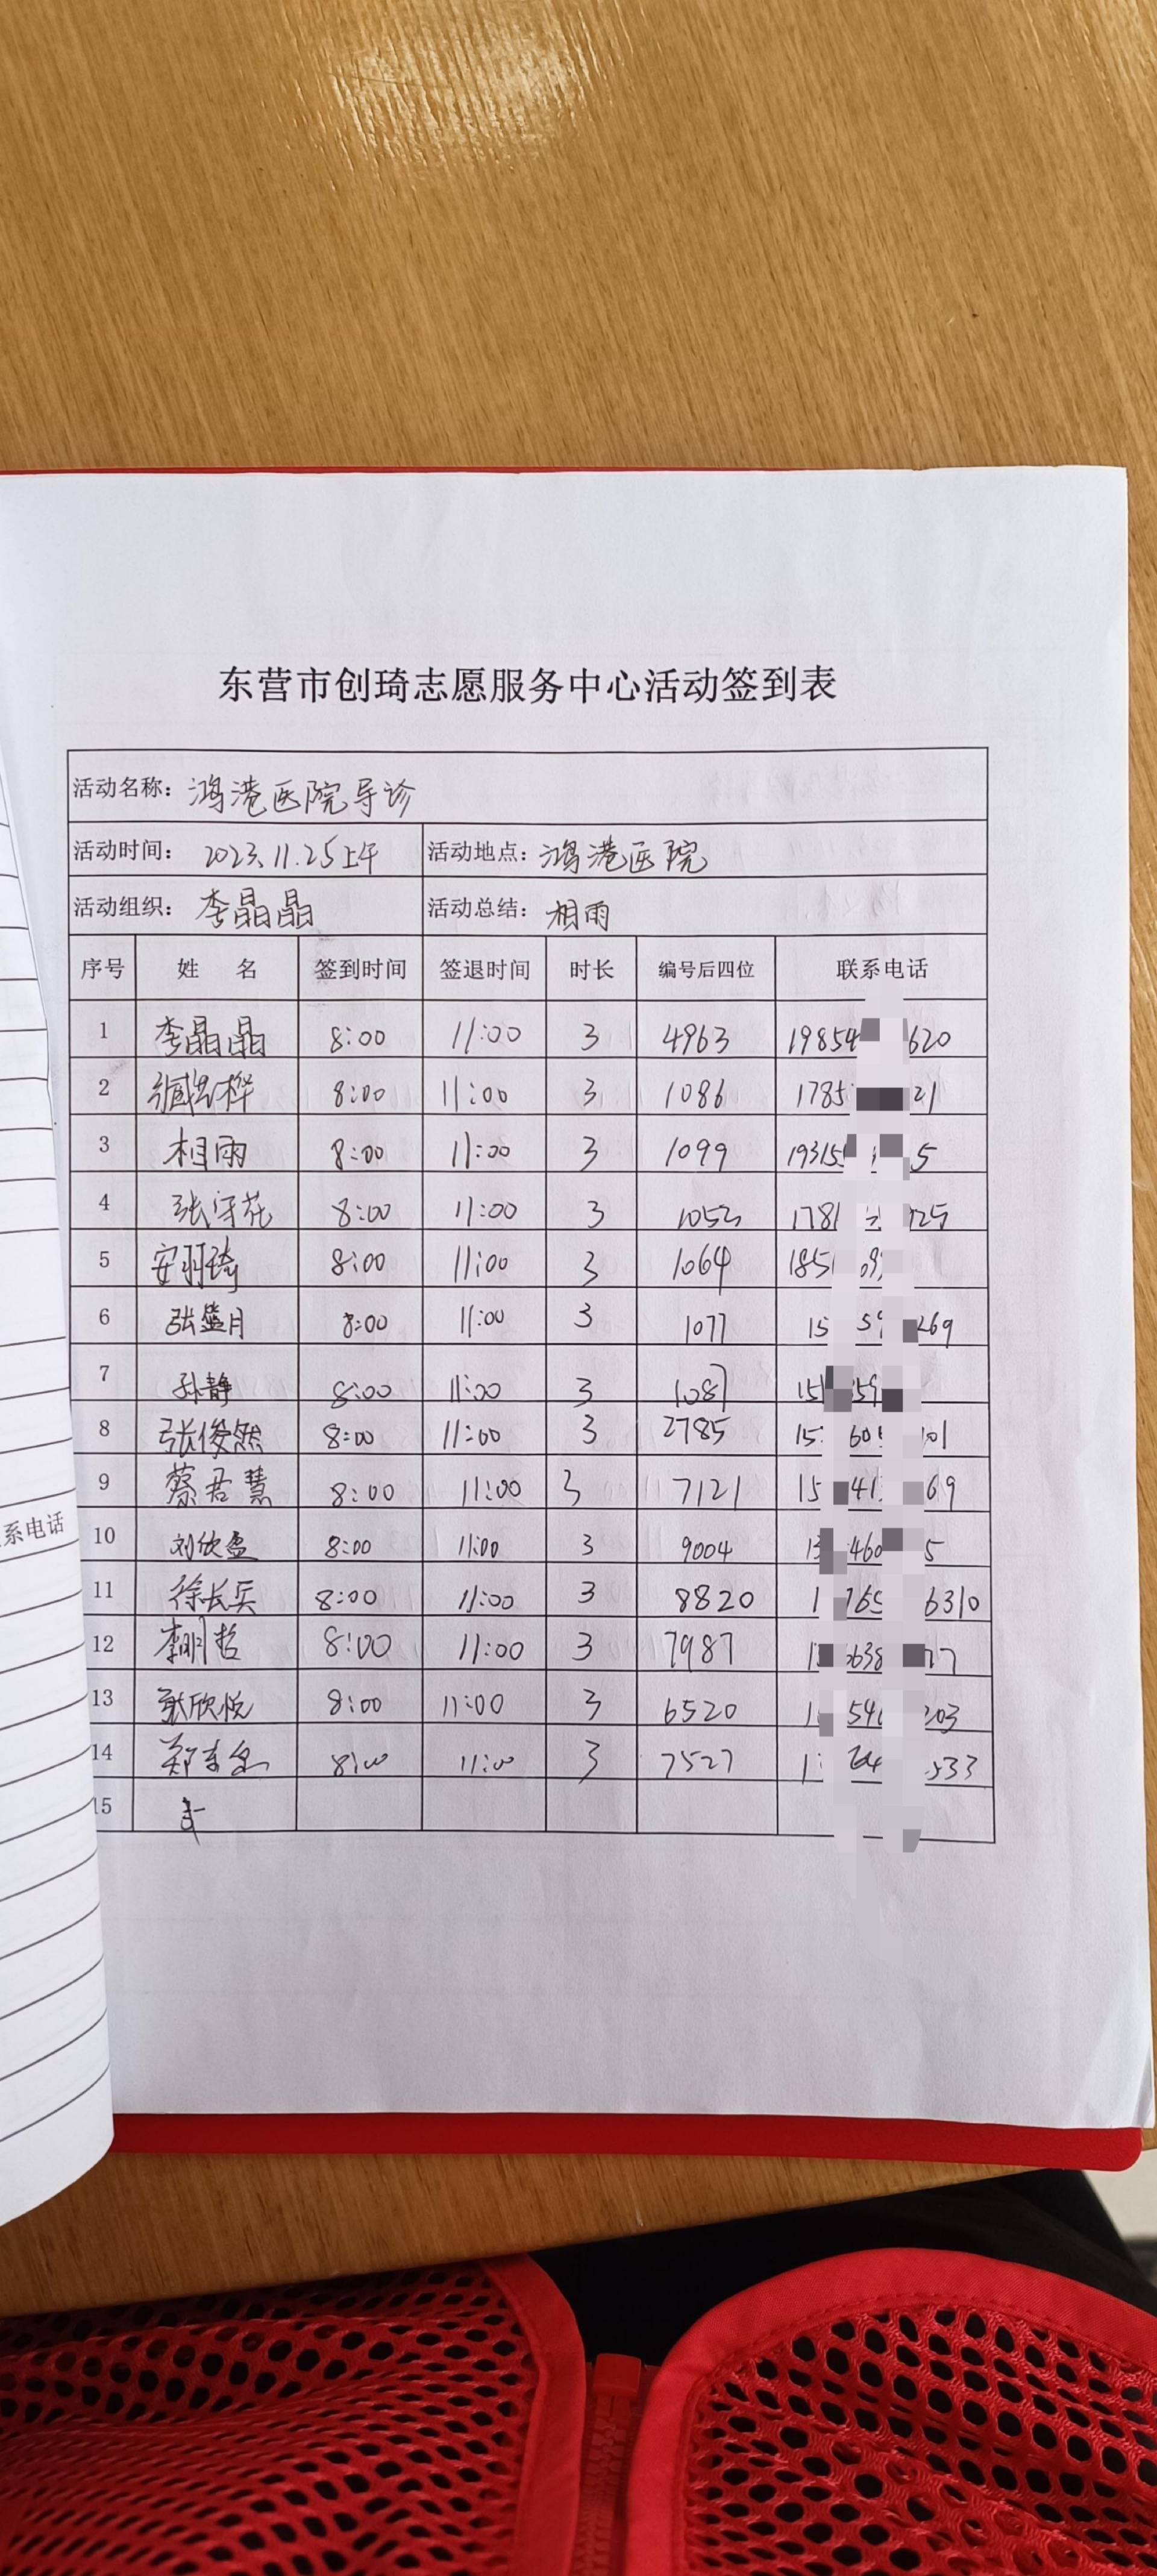 东营市创琦志愿服务中心活动签到表
活动名称: 鸿港医院导诊
活动时间: 2023.11.25上午 活动地点: 鸿港医院
活动组织: 李晶晶 活动总结: 相雨
序号 姓 名 签到时间 签退时间 时长 编号后四位 联系电话
1 李晶晶 8:00 11:00 3 4963 19854 620
2 8:00 11:00 3 1086 1785 21
3 相雨 8:00 11:00 3 1099 19315 5
4 张守花 8:00 11:00 3 1052 1781 25
5 安羽琦 8:00 11:00 3 1064 1851
6 张蓝月 8:00 11:00 3 1077 15 59 269
7 孙静 8:00 11:00 3 1087 15 59
8 张俊然 8:00 11:00 3 2785 15 60 01
9 蔡君慧 8:00 11:00 3 7121 15 41 69
10 刘欣盈 8:00 11:00 3 9004 13 460 5
11 徐长兵 8:00 11:00 3 8820 1 765 6310
12 李明哲 8:00 11:00 3 7987 1 638 77
13 张欣悦 8:00 11:00 3 6520 1 54 203
14 8:00 11:00 3 7527 1 533
15
系电话